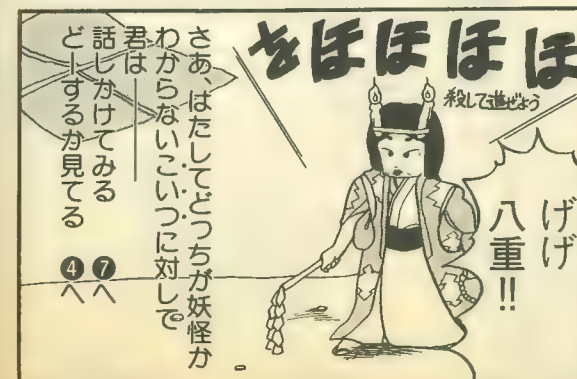 をほほほほ
殺して進ぜよう
げげ
八重!!
さあ、はたしてどっちが妖怪か
わからないこいつに対して
君は――
話しかけてみる ❼へ
どーするか見てる ❹へ